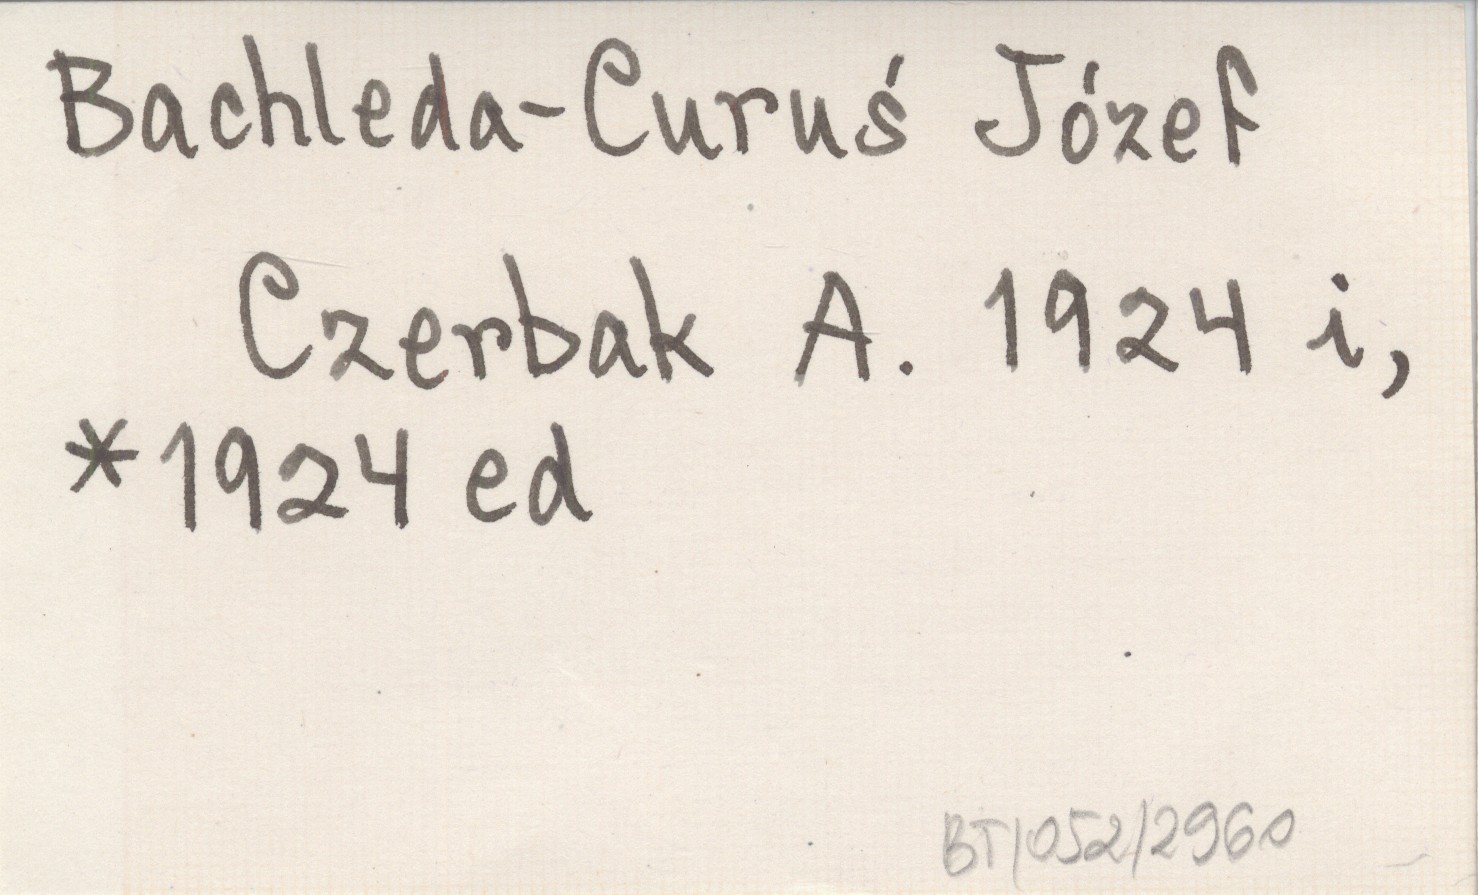 Bachleda-Curuś Józef
Czerbak A. 1924 i,
*1924 ed
BT/052/2960